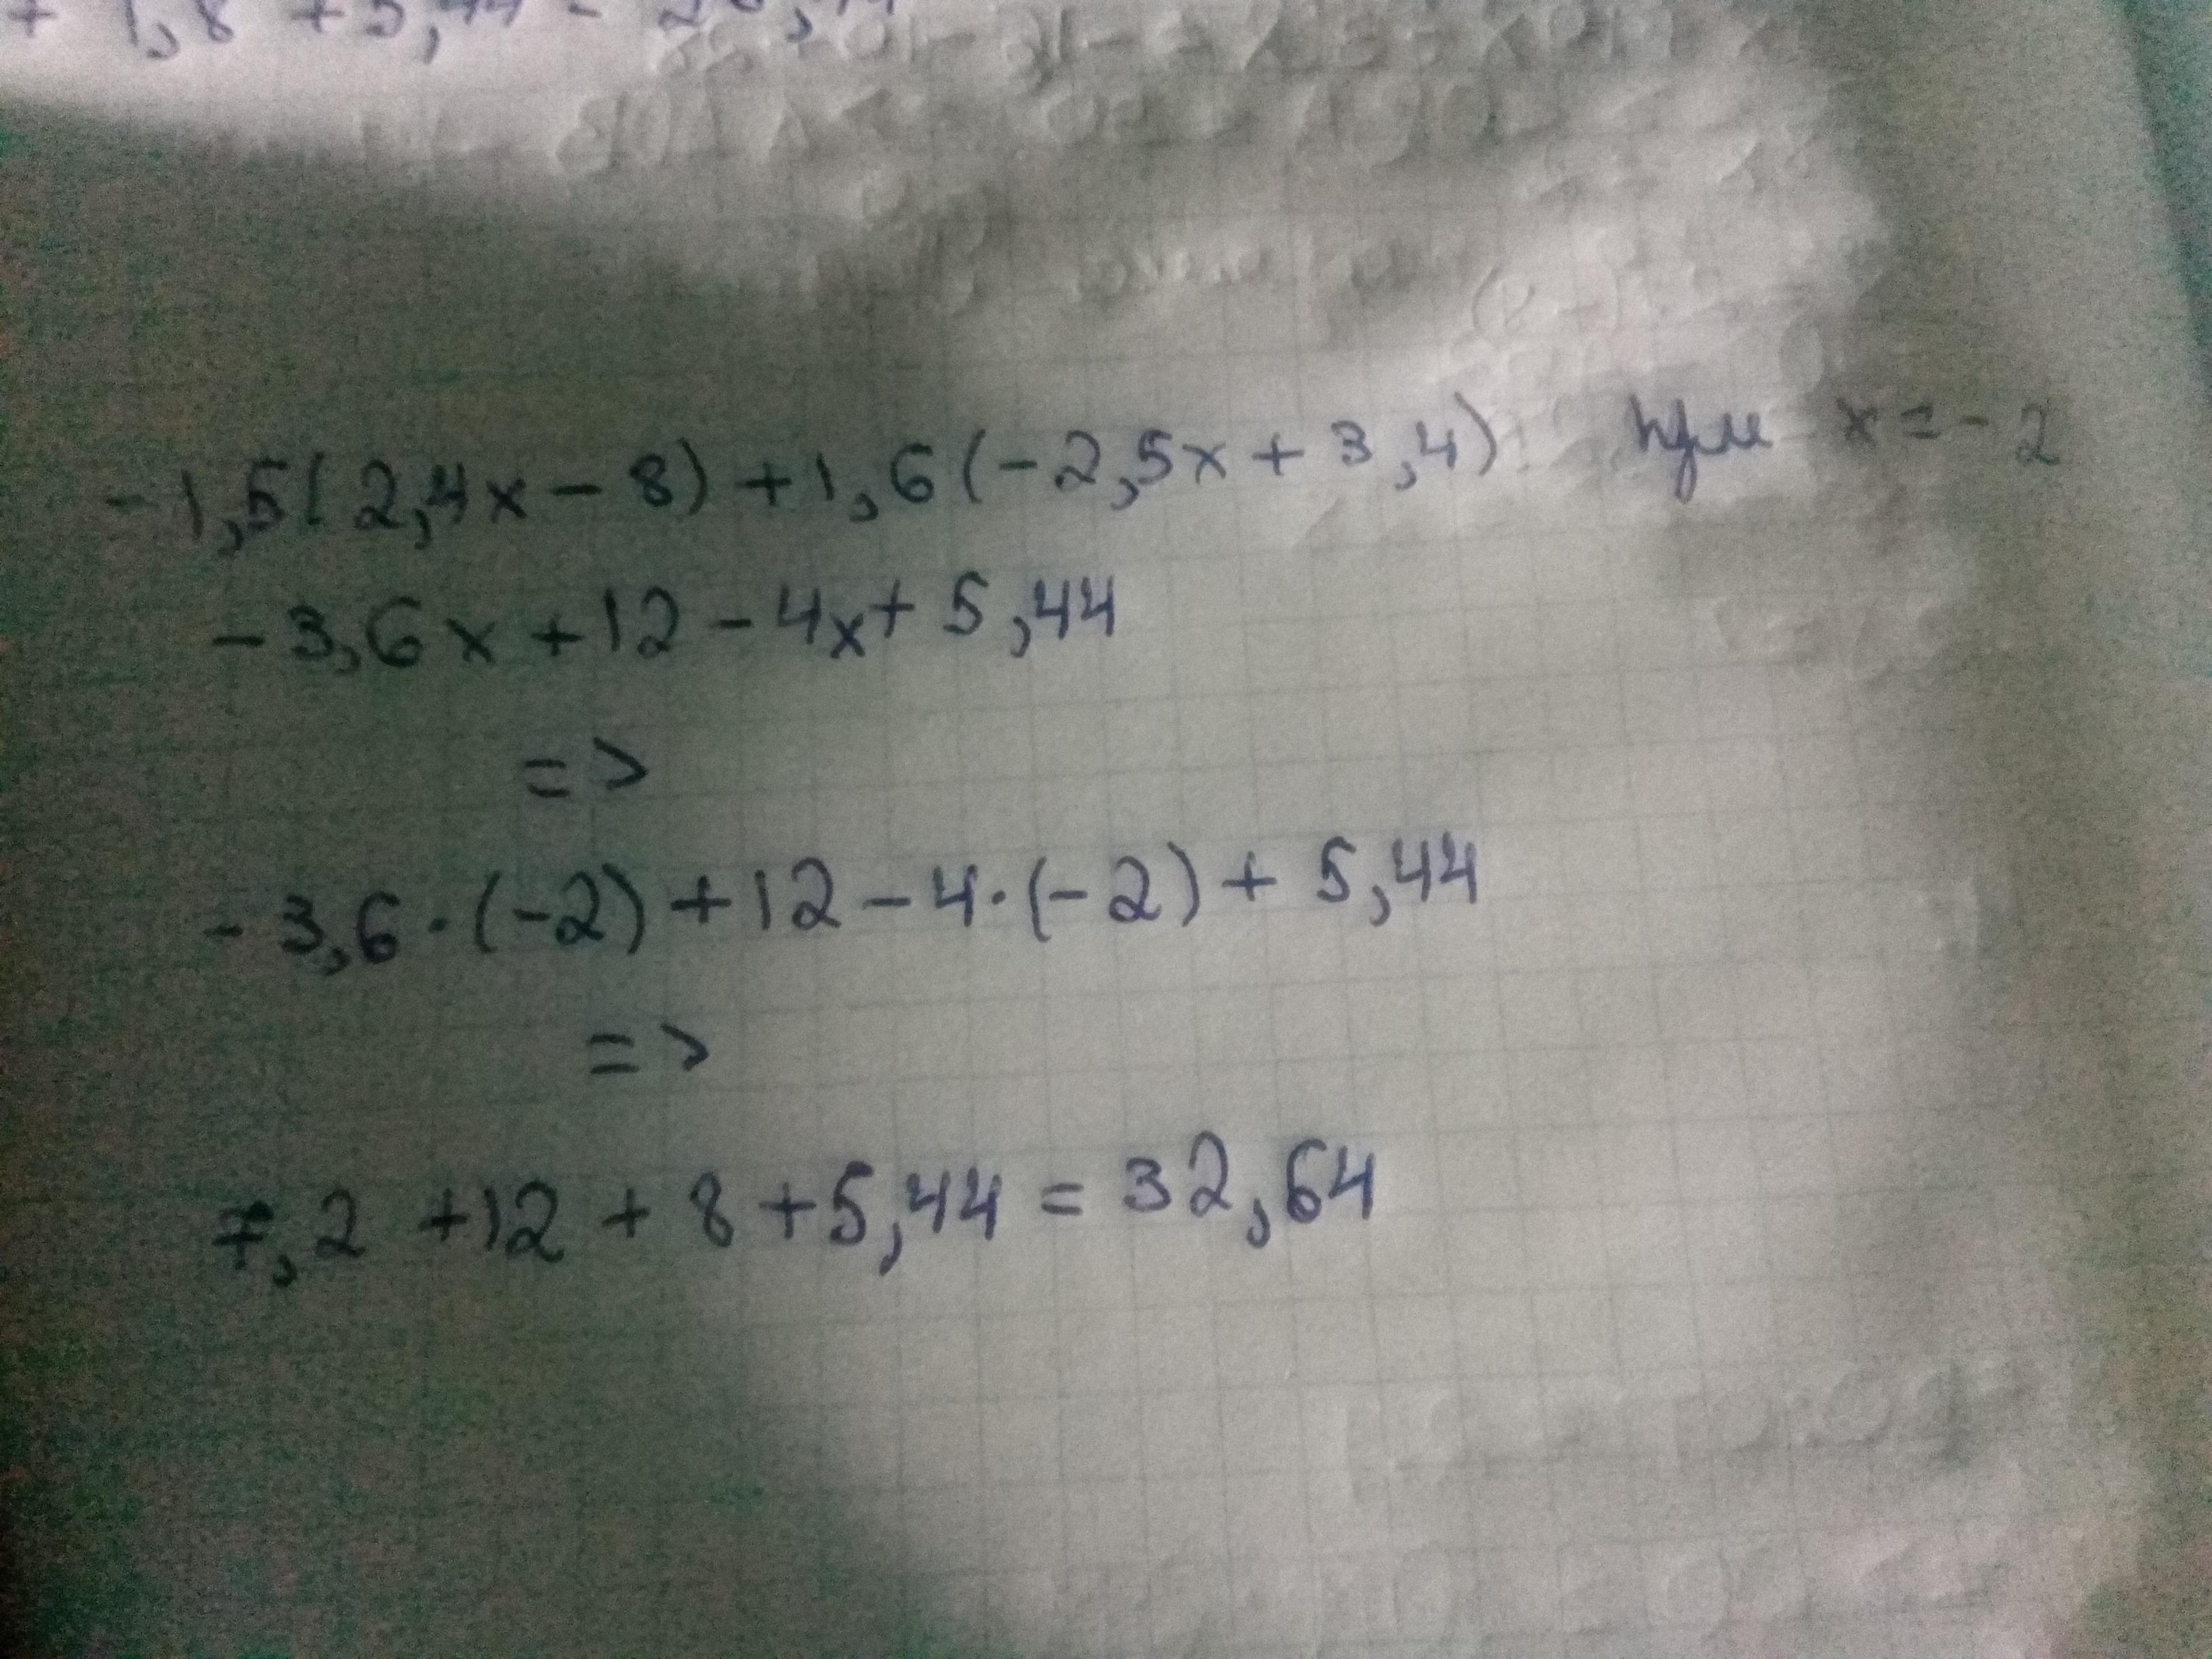 + 1,8 + 5,44
-1,5(2,4x - 8) + 1,6(-2,5x + 3,4) при x = -2
- 3,6x + 12 - 4x + 5,44
=>
- 3,6 · (-2) + 12 - 4 · (-2) + 5,44
=>
7,2 + 12 + 8 + 5,44 = 32,64